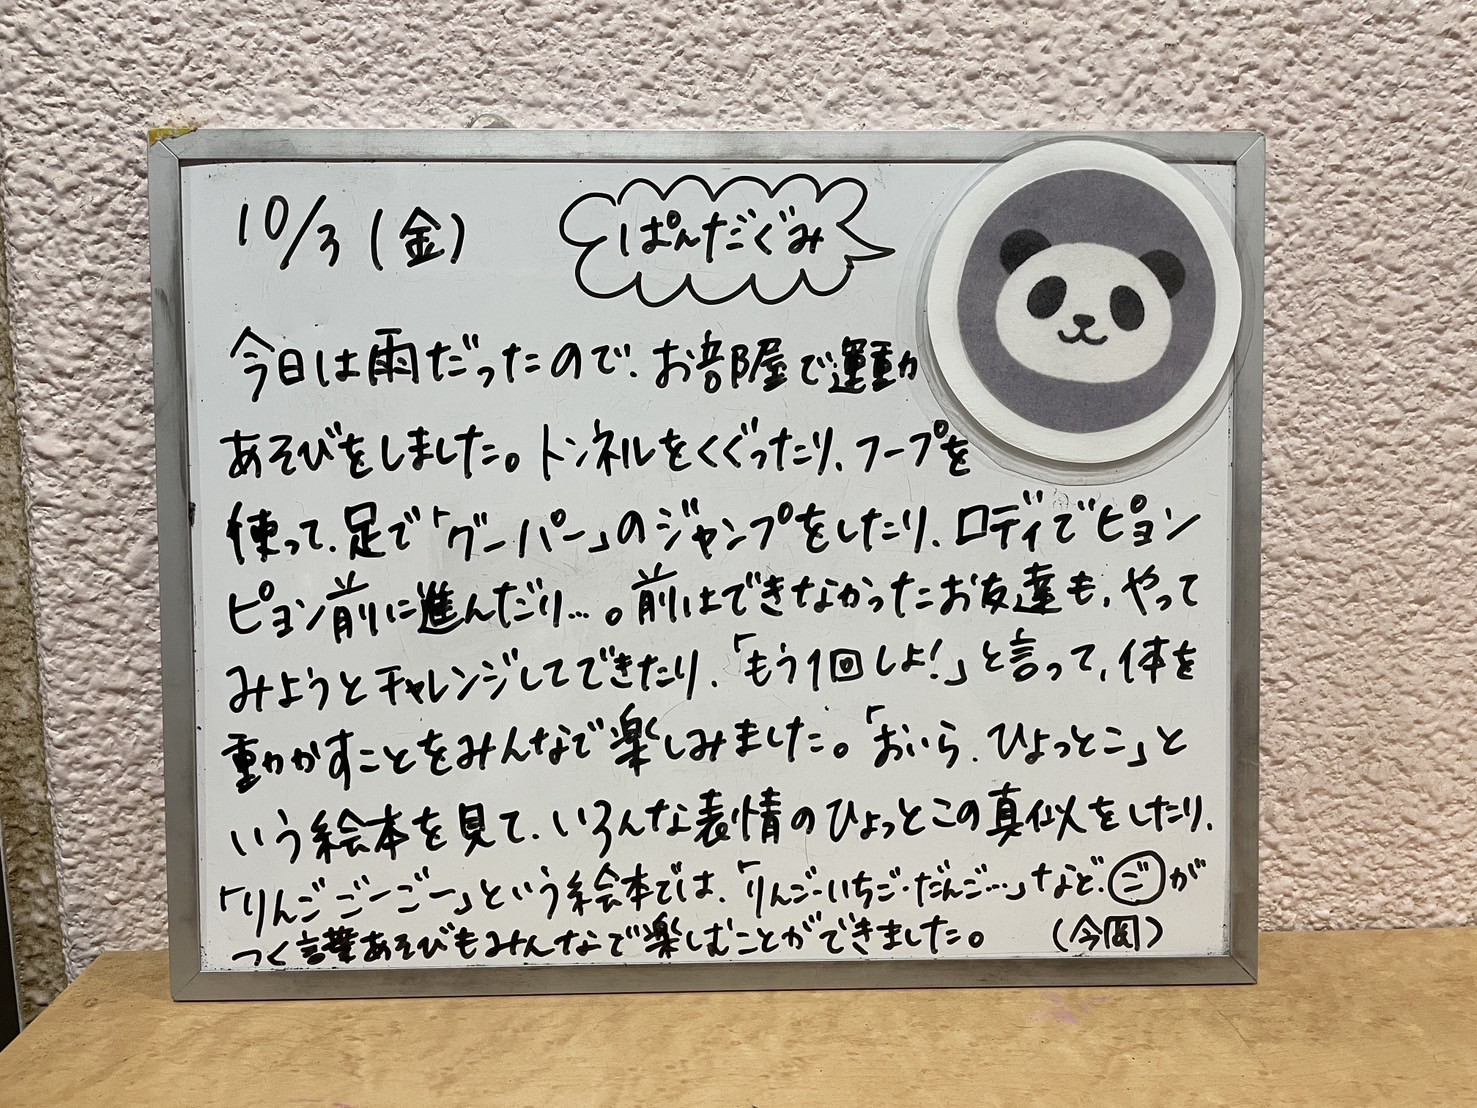 10/3(金)
ぱんだぐみ
今日は雨だったので、お部屋で運動
あそびをしました。トンネルをくぐったり、フープを
使って、足で「グーパー」のジャンプをしたり、ロディでピョン
ピョン前に進んだり…。前はできなかったお友達も、やって
みようとチャレンジしてできたり、「もう1回しよ!」と言って、体を
動かすことをみんなで楽しみました。「おいら、ひょっとこ」と
いう絵本を見て、いろんな表情のひょっとこの真似をしたり、
「りんごごーごー」という絵本では、「りんご・いちご・だんご…」など、ごが
つく言葉あそびもみんなで楽しむことができました。 (今岡)